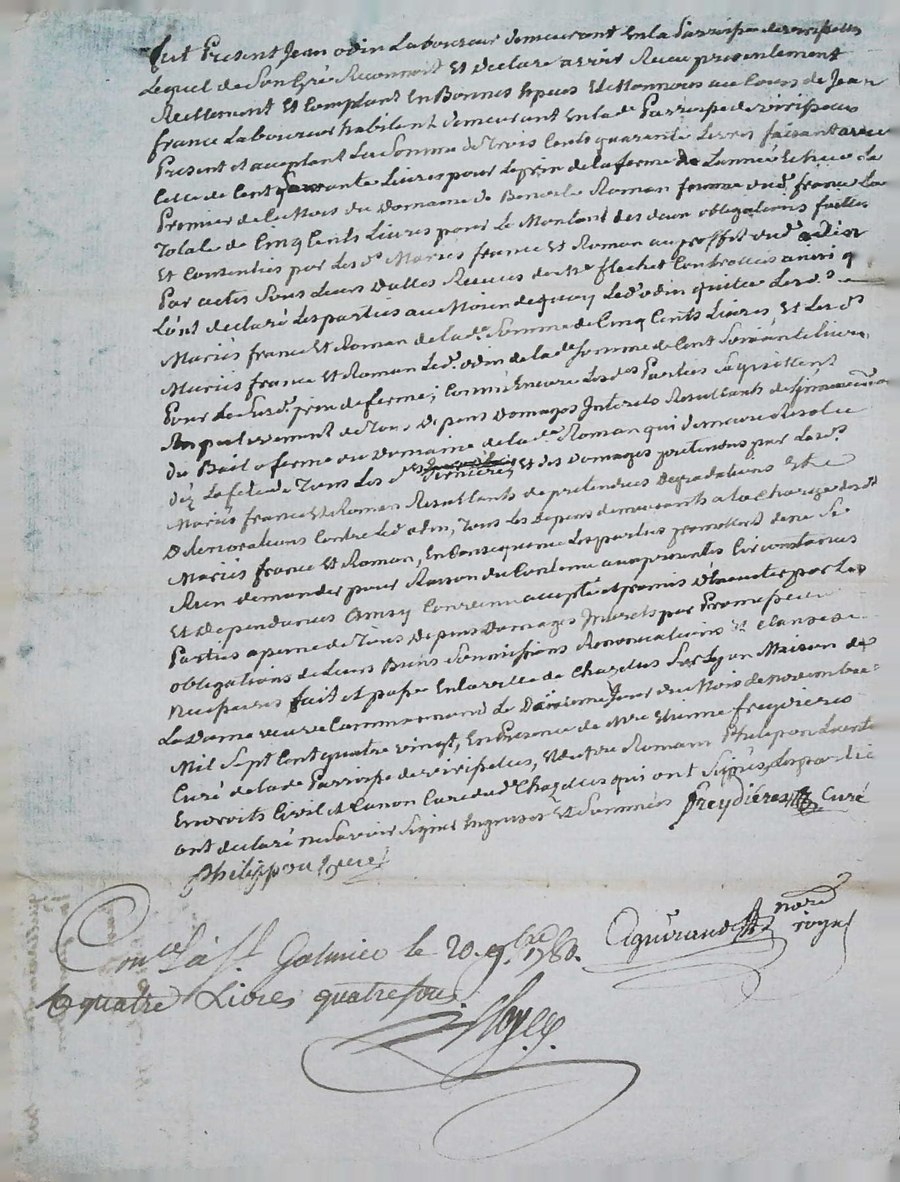 fut Present Jean odin Laboureur demeurant En la Parroisse de viricelles
Lequel de Son Gré Reconnoit Et declare avoir Receu presentement
Reellement Et Comptant En Bonnes Especes Et Monnoies au Cours de Jean
france Laboureur habitant demeurant En lad. Parroisse de
Present et acceptant La Somme de Trois Cents quarante Livres faisant avec
Celle de Cent Livres pour Le prix de la ferme de L'année Echue Le
Premier de Ce Mois du Domaine de Roman femme dud. france La
Totale de Cinq Cents Livres pour Le Montant des deux obligations faittes
Et Consenties par Lesd. Mariés france Et Roman au proffit dud. odin
Par actes Sous Leurs dattes Receues de Me flechet Controllées ainsi q
L'ont declaré Les parties au Moien de quoy Led. odin quitte Lesd.
Mariés france Et Roman de lad. Somme de Cinq Cents Livres Et Lesd.
Mariés france Et Roman Led. odin de lad. Somme de Cent Livres
Pour Le Susd. prix de ferme; Comme Encore Lesd. Parties Se quittent
Respectivement de Tous Depens Domages Interets Resultants de
du Bail a ferme du Domaine de lad. Roman qui demeure Resolu
de Tous Les d. Et des Domages pretendus par Lesd.
Mariés france Et Roman Resultants de pretendues degradations Et
Deteriorations Contre Led. odin, Tous Les depens demeurants a la Charge desd.
Mariés france Et Roman, En Consequence Les parties promettent de ne Se
Rien demander pour Raison du Contenu aux presentes Circonstances
Et Dependances Ainsy Convenu accepté et promis D'executer par Les
Parties a peine de Tous Depens Domages Interets par Promesses
obligations de Leurs Biens Soumissions Renonciations Et Clauses
Necessaires fait et passé En la ville de Chazelles Sur Lyon Maison de
La Dame veuve Commarmond Le Jour du Mois de novembre
Mil Sept Cent quatre vingt, En Presence de Mre Etienne freydieres
Curé de lad. Parroisse de viricelles, Et de Mre Romain Philippon Licentié
En droits Civil et Canon Curé dud. Chazelles qui ont Signés, Les parties
ont declaré ne Savoir Signer Enquises Et Sommées Freydières Curé
Philippon Curé
Conlé à St. Galmier le 20. 9bre 1780. Aguiraud nore
R quatre Livres quatre sous royal